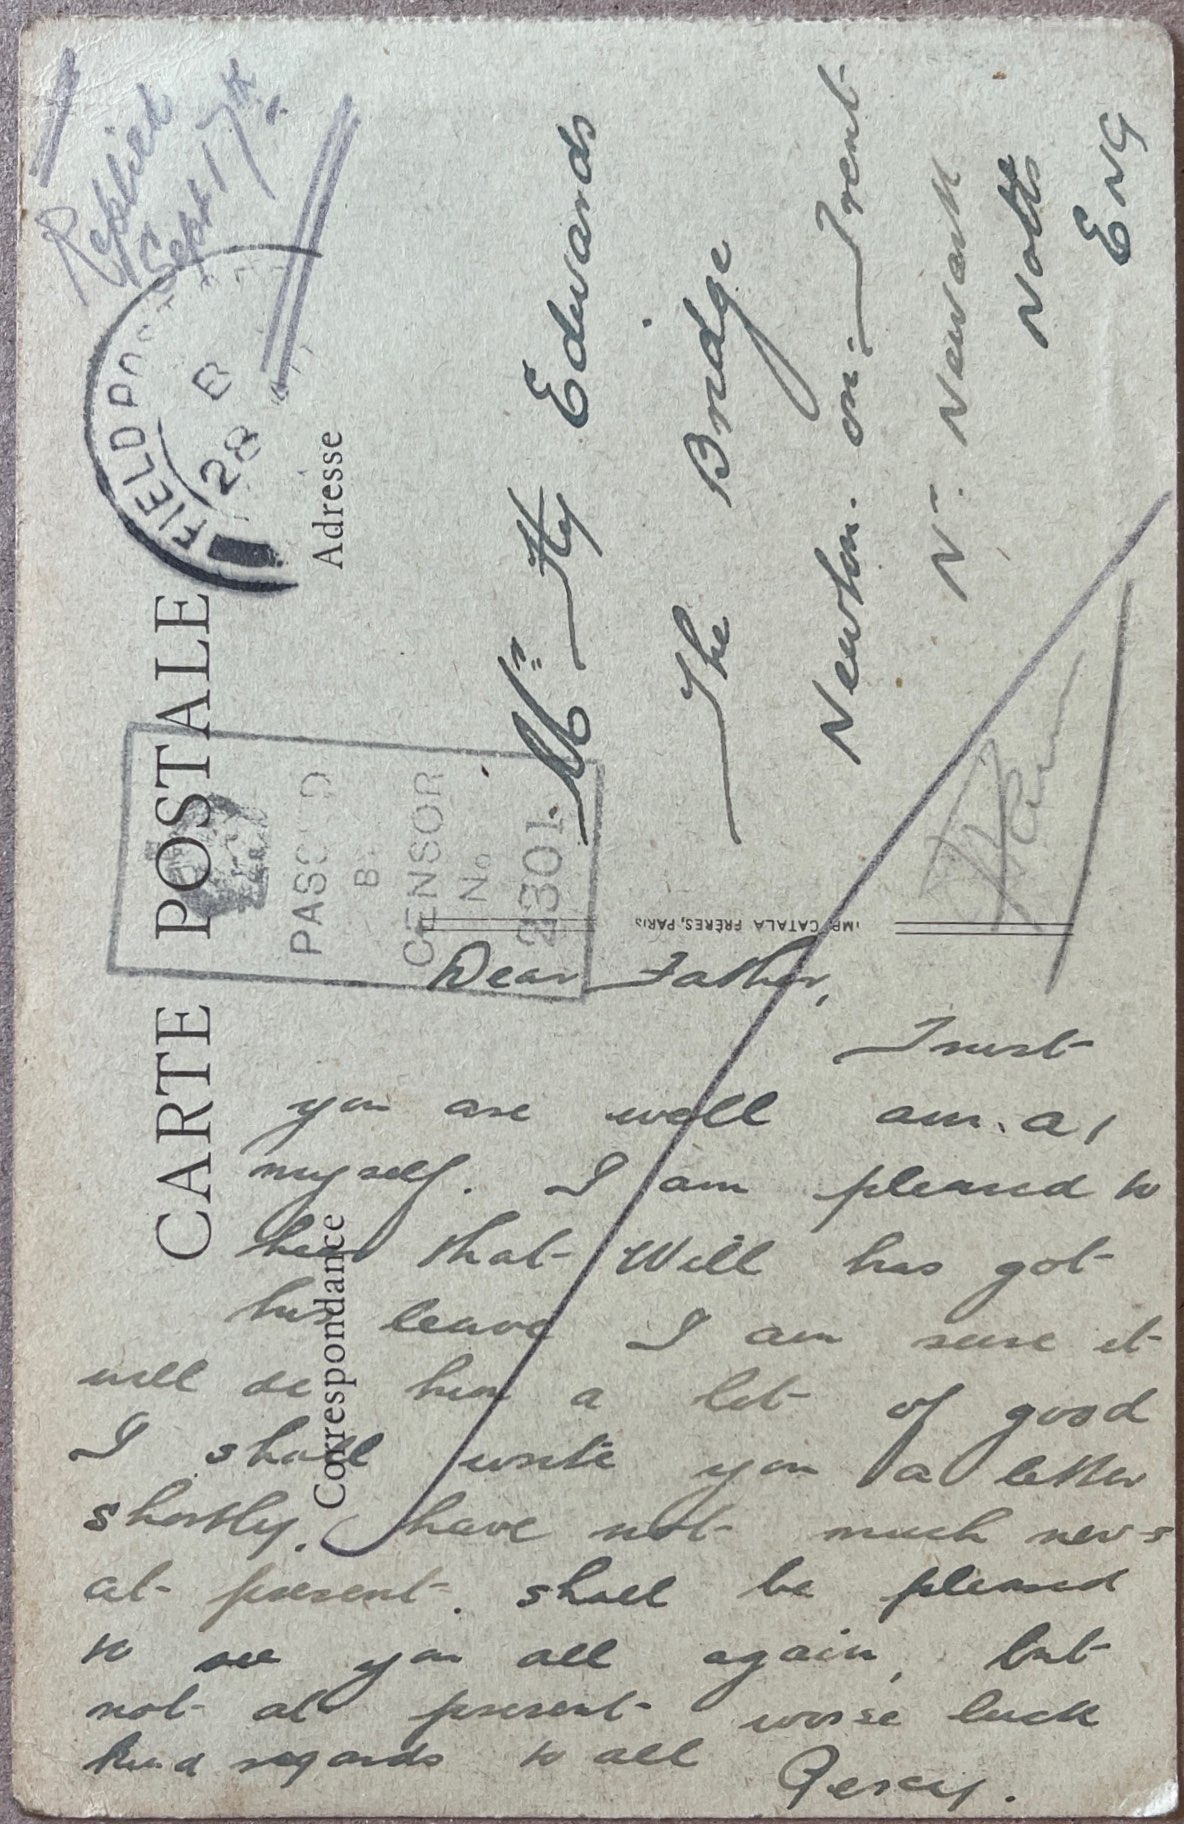 Replied
Sept 17th
FIELD PO
B
28
CARTE POSTALE
Correspondance
Adresse
PASS D
B
CENSOR
No
2301
Mr Hy Edwards
The Bridge
Newton. on. Trent
Nr. Newark
Notts
ENG
IMP. CATALA FRÈRES, PARIS
Dear Father,
Trust
you are well am. A1
myself. I am pleased to
hear that Will has got
his leave I am sure it
will do him a lot of good
I shall write you a letter
shortly. have not much news
at present. shall be pleased
to see you all again, but
not at present worse luck
kind regards to all
Percy.